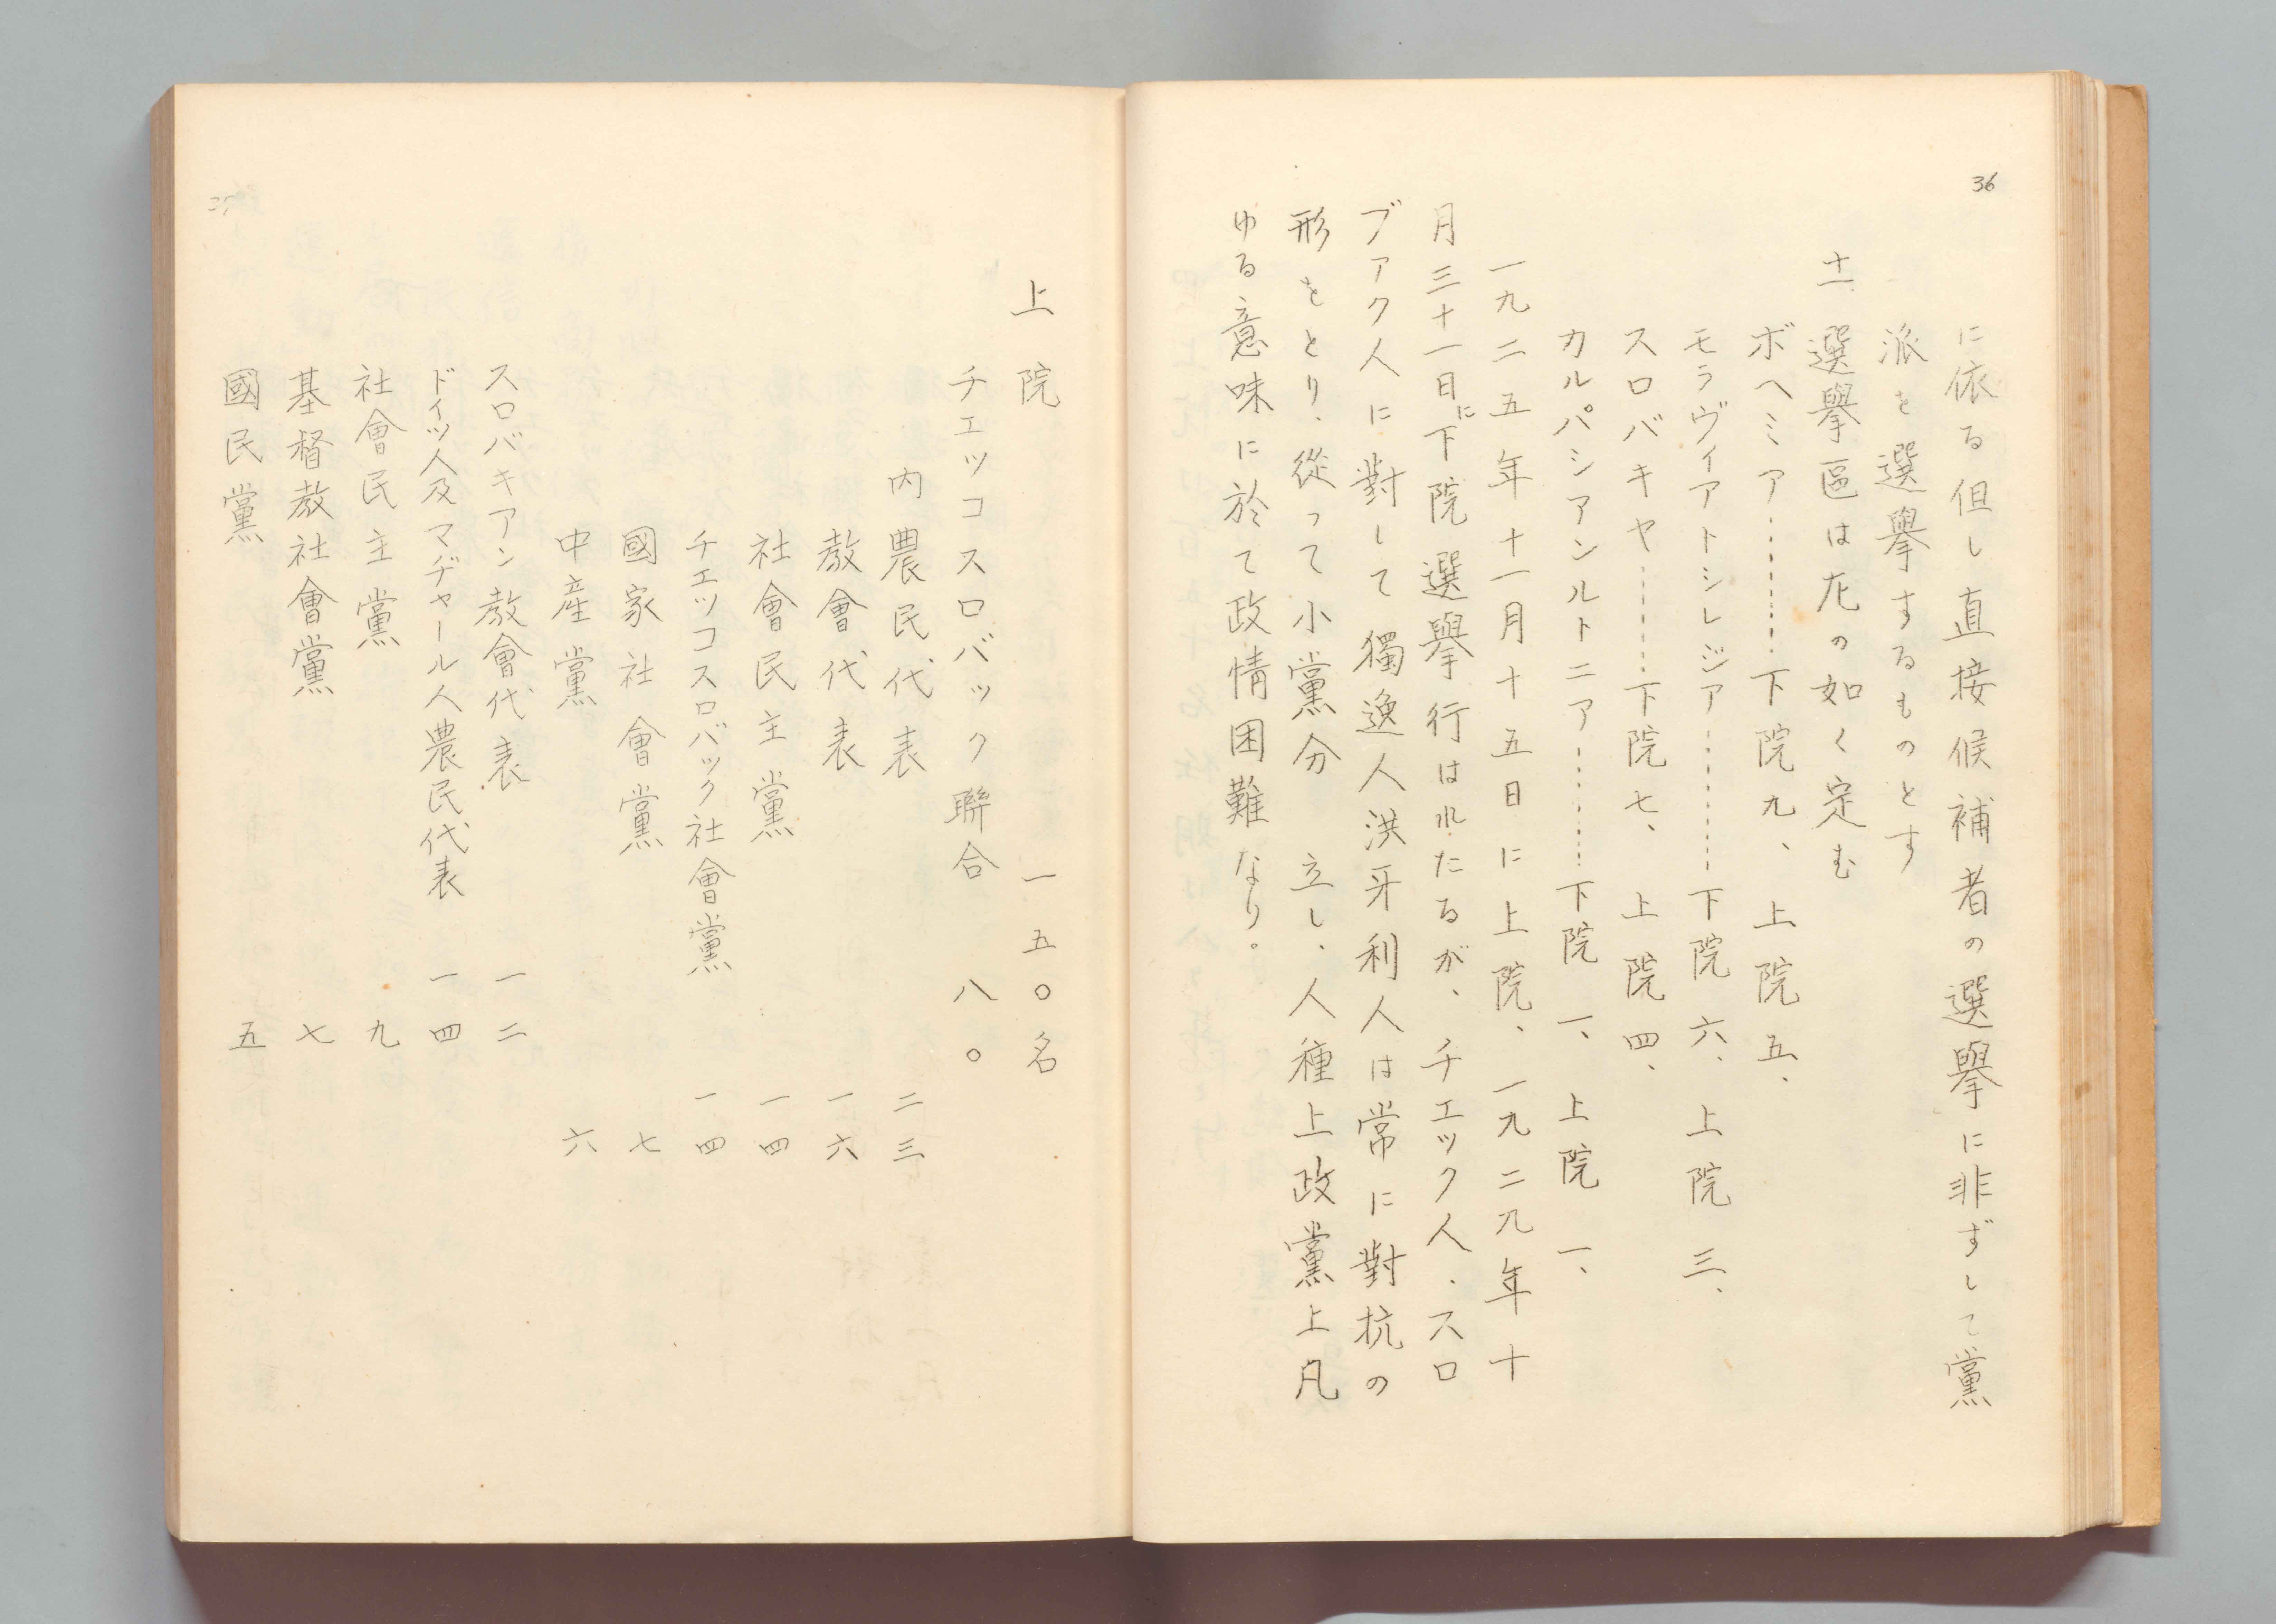 36
に依る但し直接候補者の選擧に非ずして黨
派を選擧するものとす
十一 選擧區は左の如く定む
ボヘミア………下院九、上院五、
モラヴィアトシレジア………下院六、上院三、
スロバキヤ………下院七、上院四、
カルパシアンルトニア………下院一、上院一、
一九二五年十一月十五日に上院、一九二九年十
月三十一日に下院選擧行はれたるが、チエック人、スロ
ブァク人に對して獨逸人洪牙利人は常に對抗の
形をとり、從って小黨分 立し、人種上政黨上凡
ゆる意味に於て政情困難なり。
上院 一五〇名
チェッコスロバック聯合 八〇
内農民代表 二三
教會代表 一六
社會民主黨 一四
チェッコスロバック社會黨 一四
國家社會黨 七
中産黨 六
スロバキアン教會代表 一二
ドイツ人及マヂャール人農民代表 一四
社會民主黨 九
基督教社會黨 七
國民黨 五
37